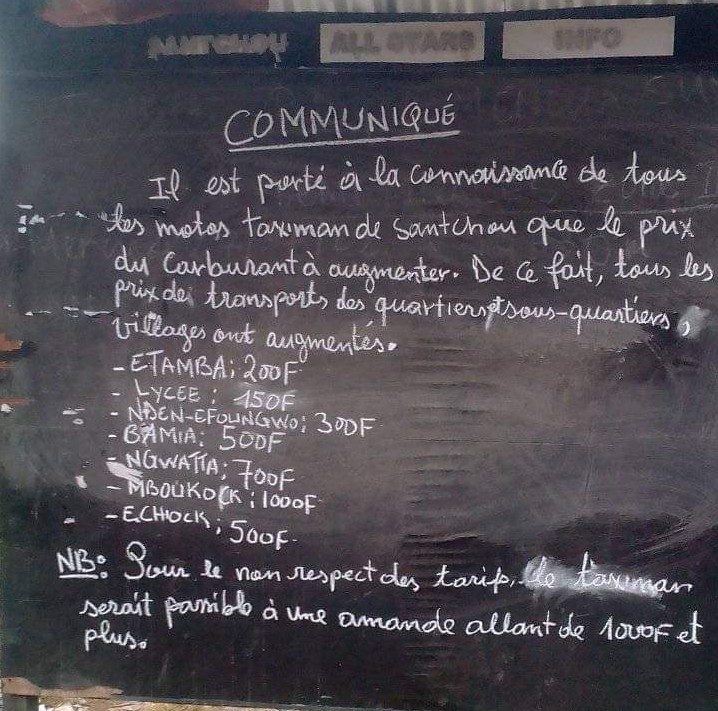 SANTCHOU ALL STARS INFO
COMMUNIQUÉ
Il est porté à la connaissance de tous
les motos taximan de Santchou que le prix
du Carburant à augmenter. De ce fait, tous les
prix des transports des quartiers, et sous-quartiers,
villages ont augmentés.
- ETAMBA; 200F
- LYCEE; 150F
- NDEN-EFOUNGWO; 300F
- BAMIA: 500F
- NGWATTA; 700F
- MBOUKOCK; 1000F
- ECHIOCK; 500F.
NB: Pour le non respect des tarifs, le taximan
serait passible à une amande allant de 1000F et
plus.